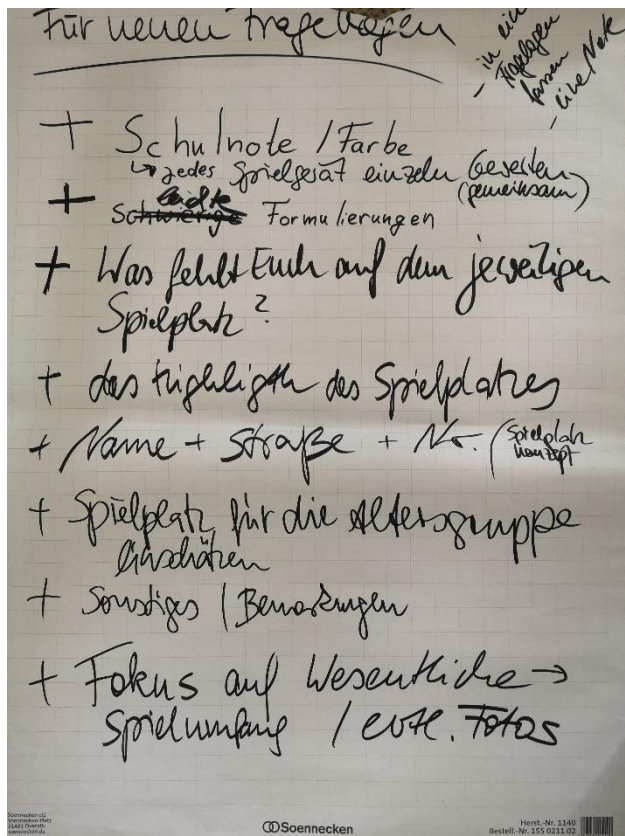 Für neuen Fragebogen
- in ein
Fragebogen
fassen
- eine Note
+ Schulnote / Farbe
↳ jedes Spielgerät einzeln bewerten
(gemeinsam)
leichte
+ Schwierige Formulierungen
+ Was fehlt Euch auf dem jeweiligen
Spielplatz?
+ das Highligth des Spielplatzes
+ Name + Straße + Nr. (Spielplatz
konzept
+ Spielplatz für die Altersgruppe
einschätzen
+ Sonstiges / Bemerkungen
+ Fokus auf Wesentliche →
Spielumfang / evtl. Fotos
Soennecken eG
Soennecken-Platz
51491 Overath
soennecken.de
Soennecken
Herst.-Nr. 1140
Bestell.-Nr. 155 0211 02